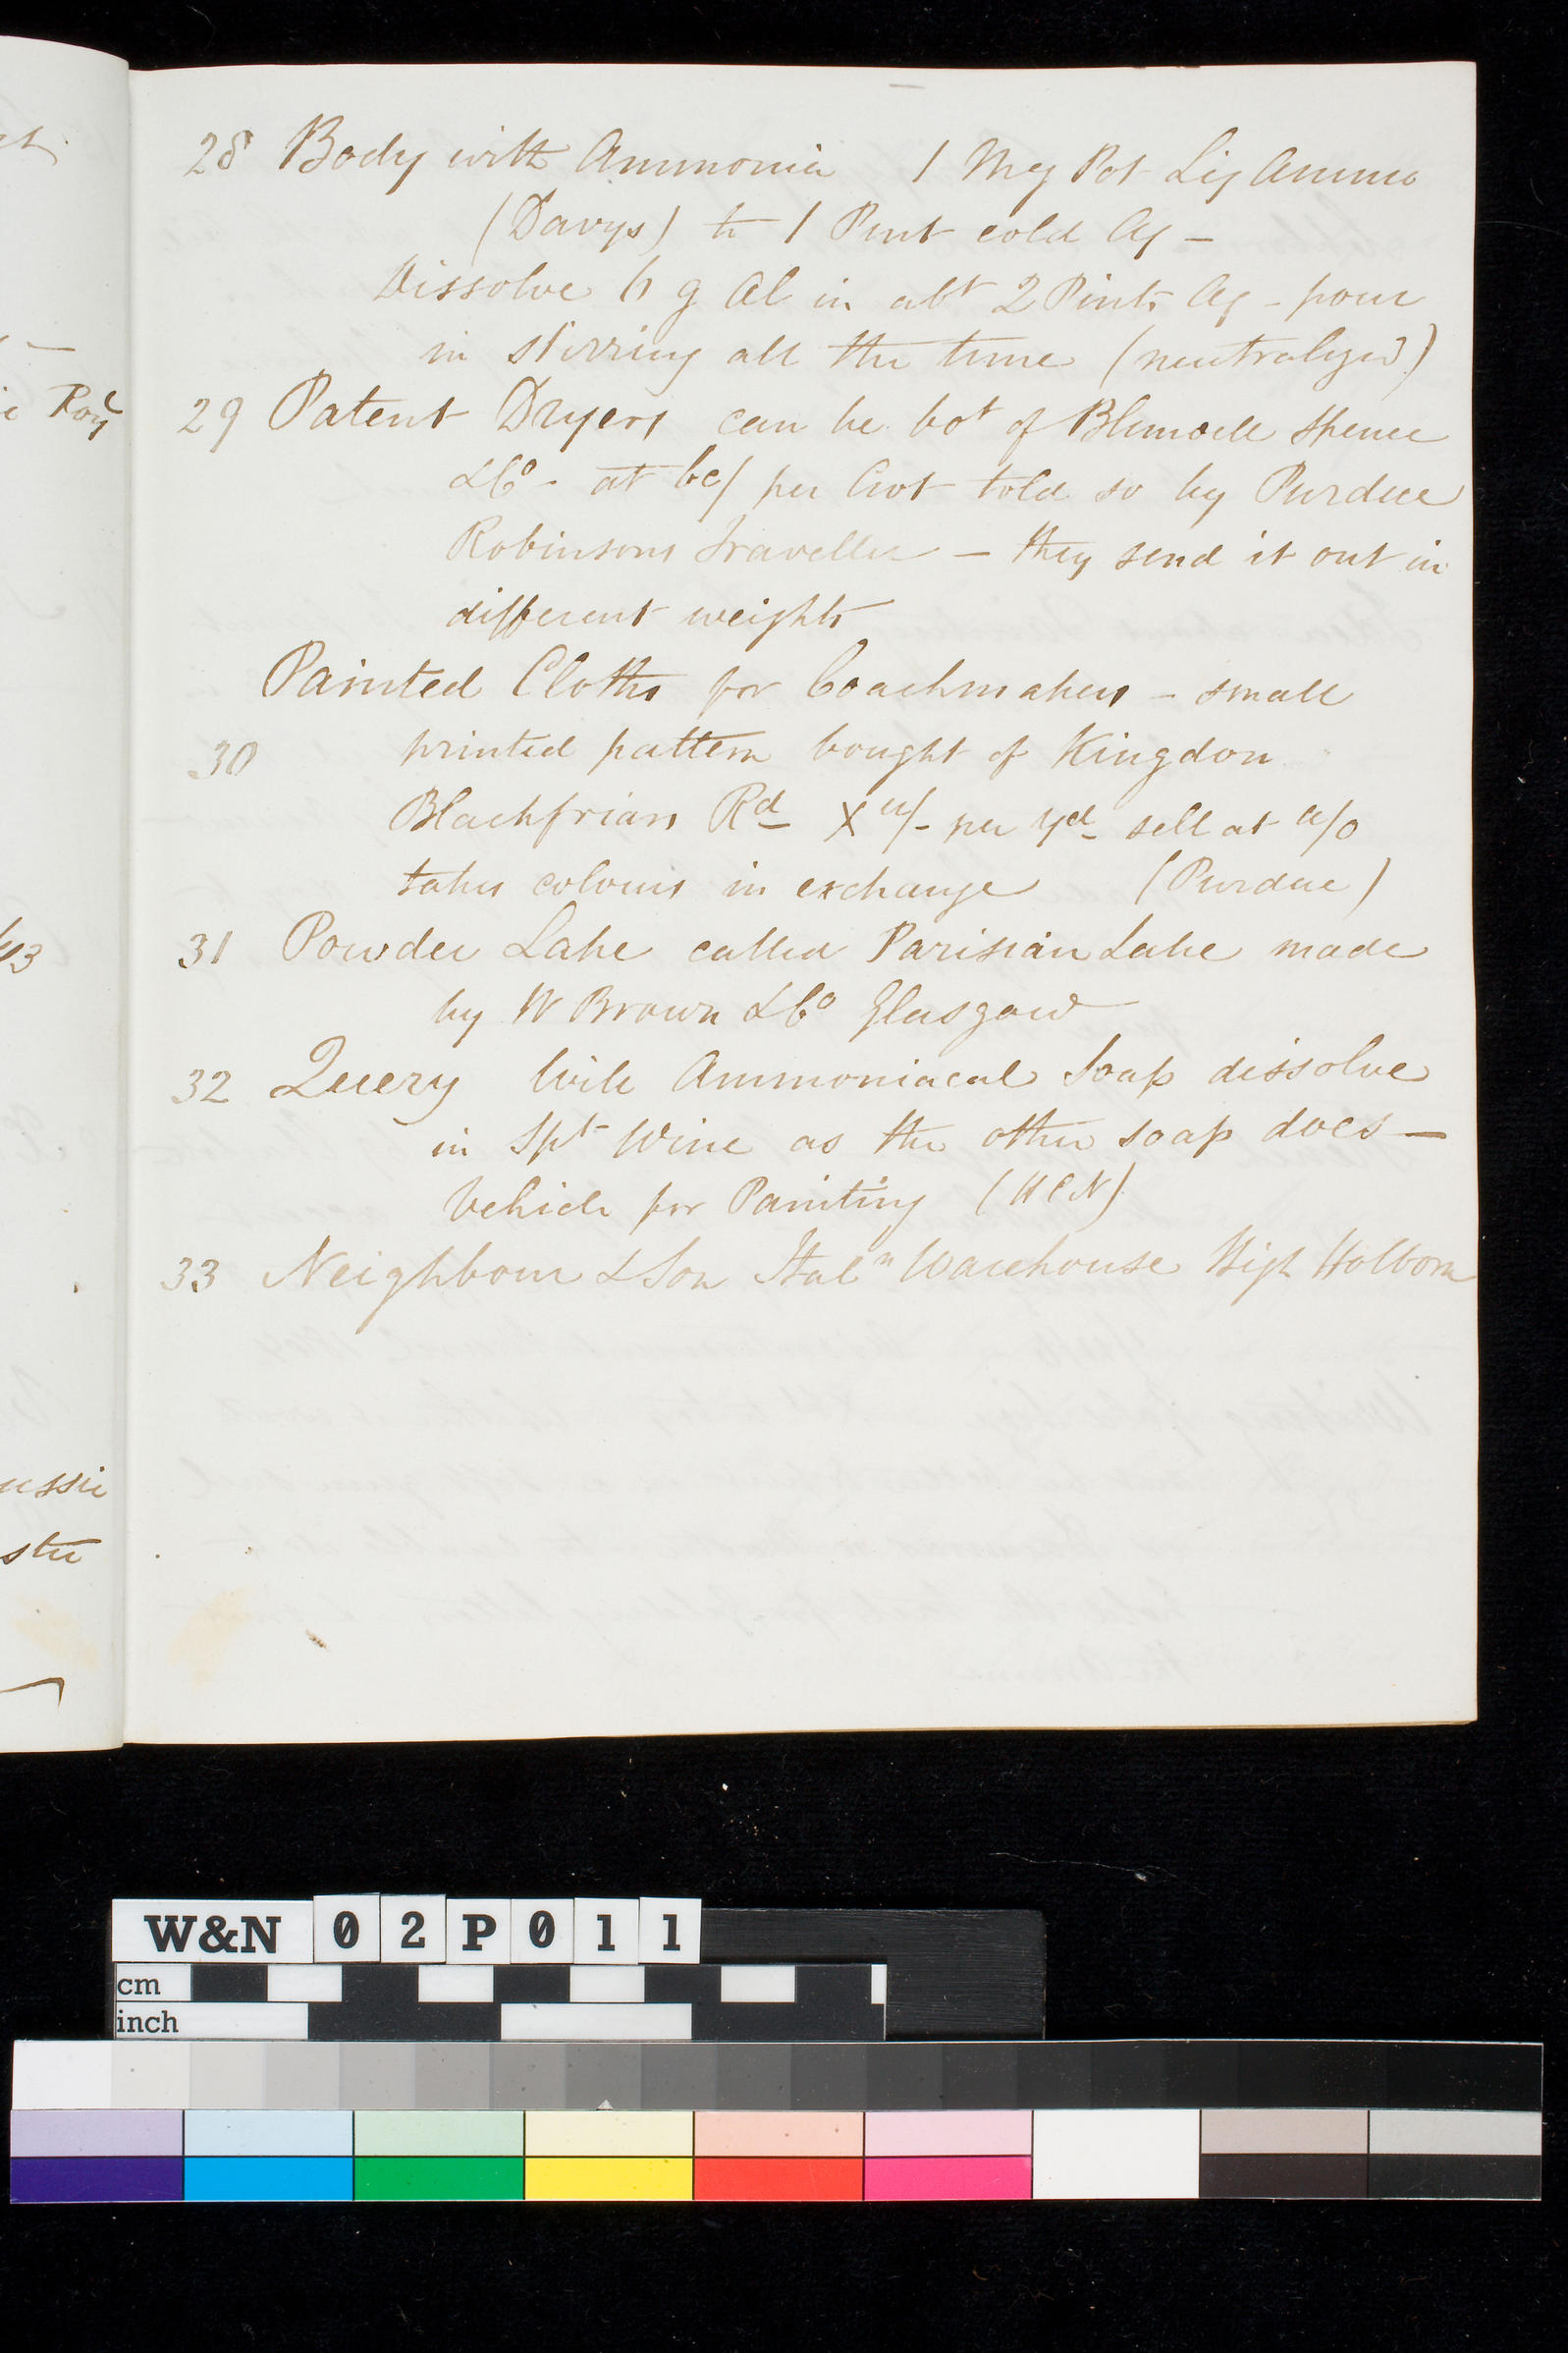 28 Body with Ammonia 1 Meg Pot Liq Ammo
(Davys) to 1 Pint cold Aq –
Dissolve 6 g Al in abt 2 Pints Aq – pour
in stirring all the time (neutralized)
29 Patent Dryers can be bot of Blundell Spence
& Co – at per Cwt told so by Purdue
Robinsons Traveller – they send it out in
different weights
Painted Cloths for Coachmakers – small
30 printed pattern bought of Kingdon
Blackfriars Rd X per yd sell at
takes colours in exchange (Purdue)
31 Powder Lake called Parisian Lake made
by W Brown & Co Glasgow
32 Query Will Ammoniacal Soap dissolve
in Spt Wine as the other soap does –
Vehicle for Painting (HCN)
33 Neighbour & Son Italn Warehouse High Holborn
ussie
stu
W&N 02P011
cm
inch